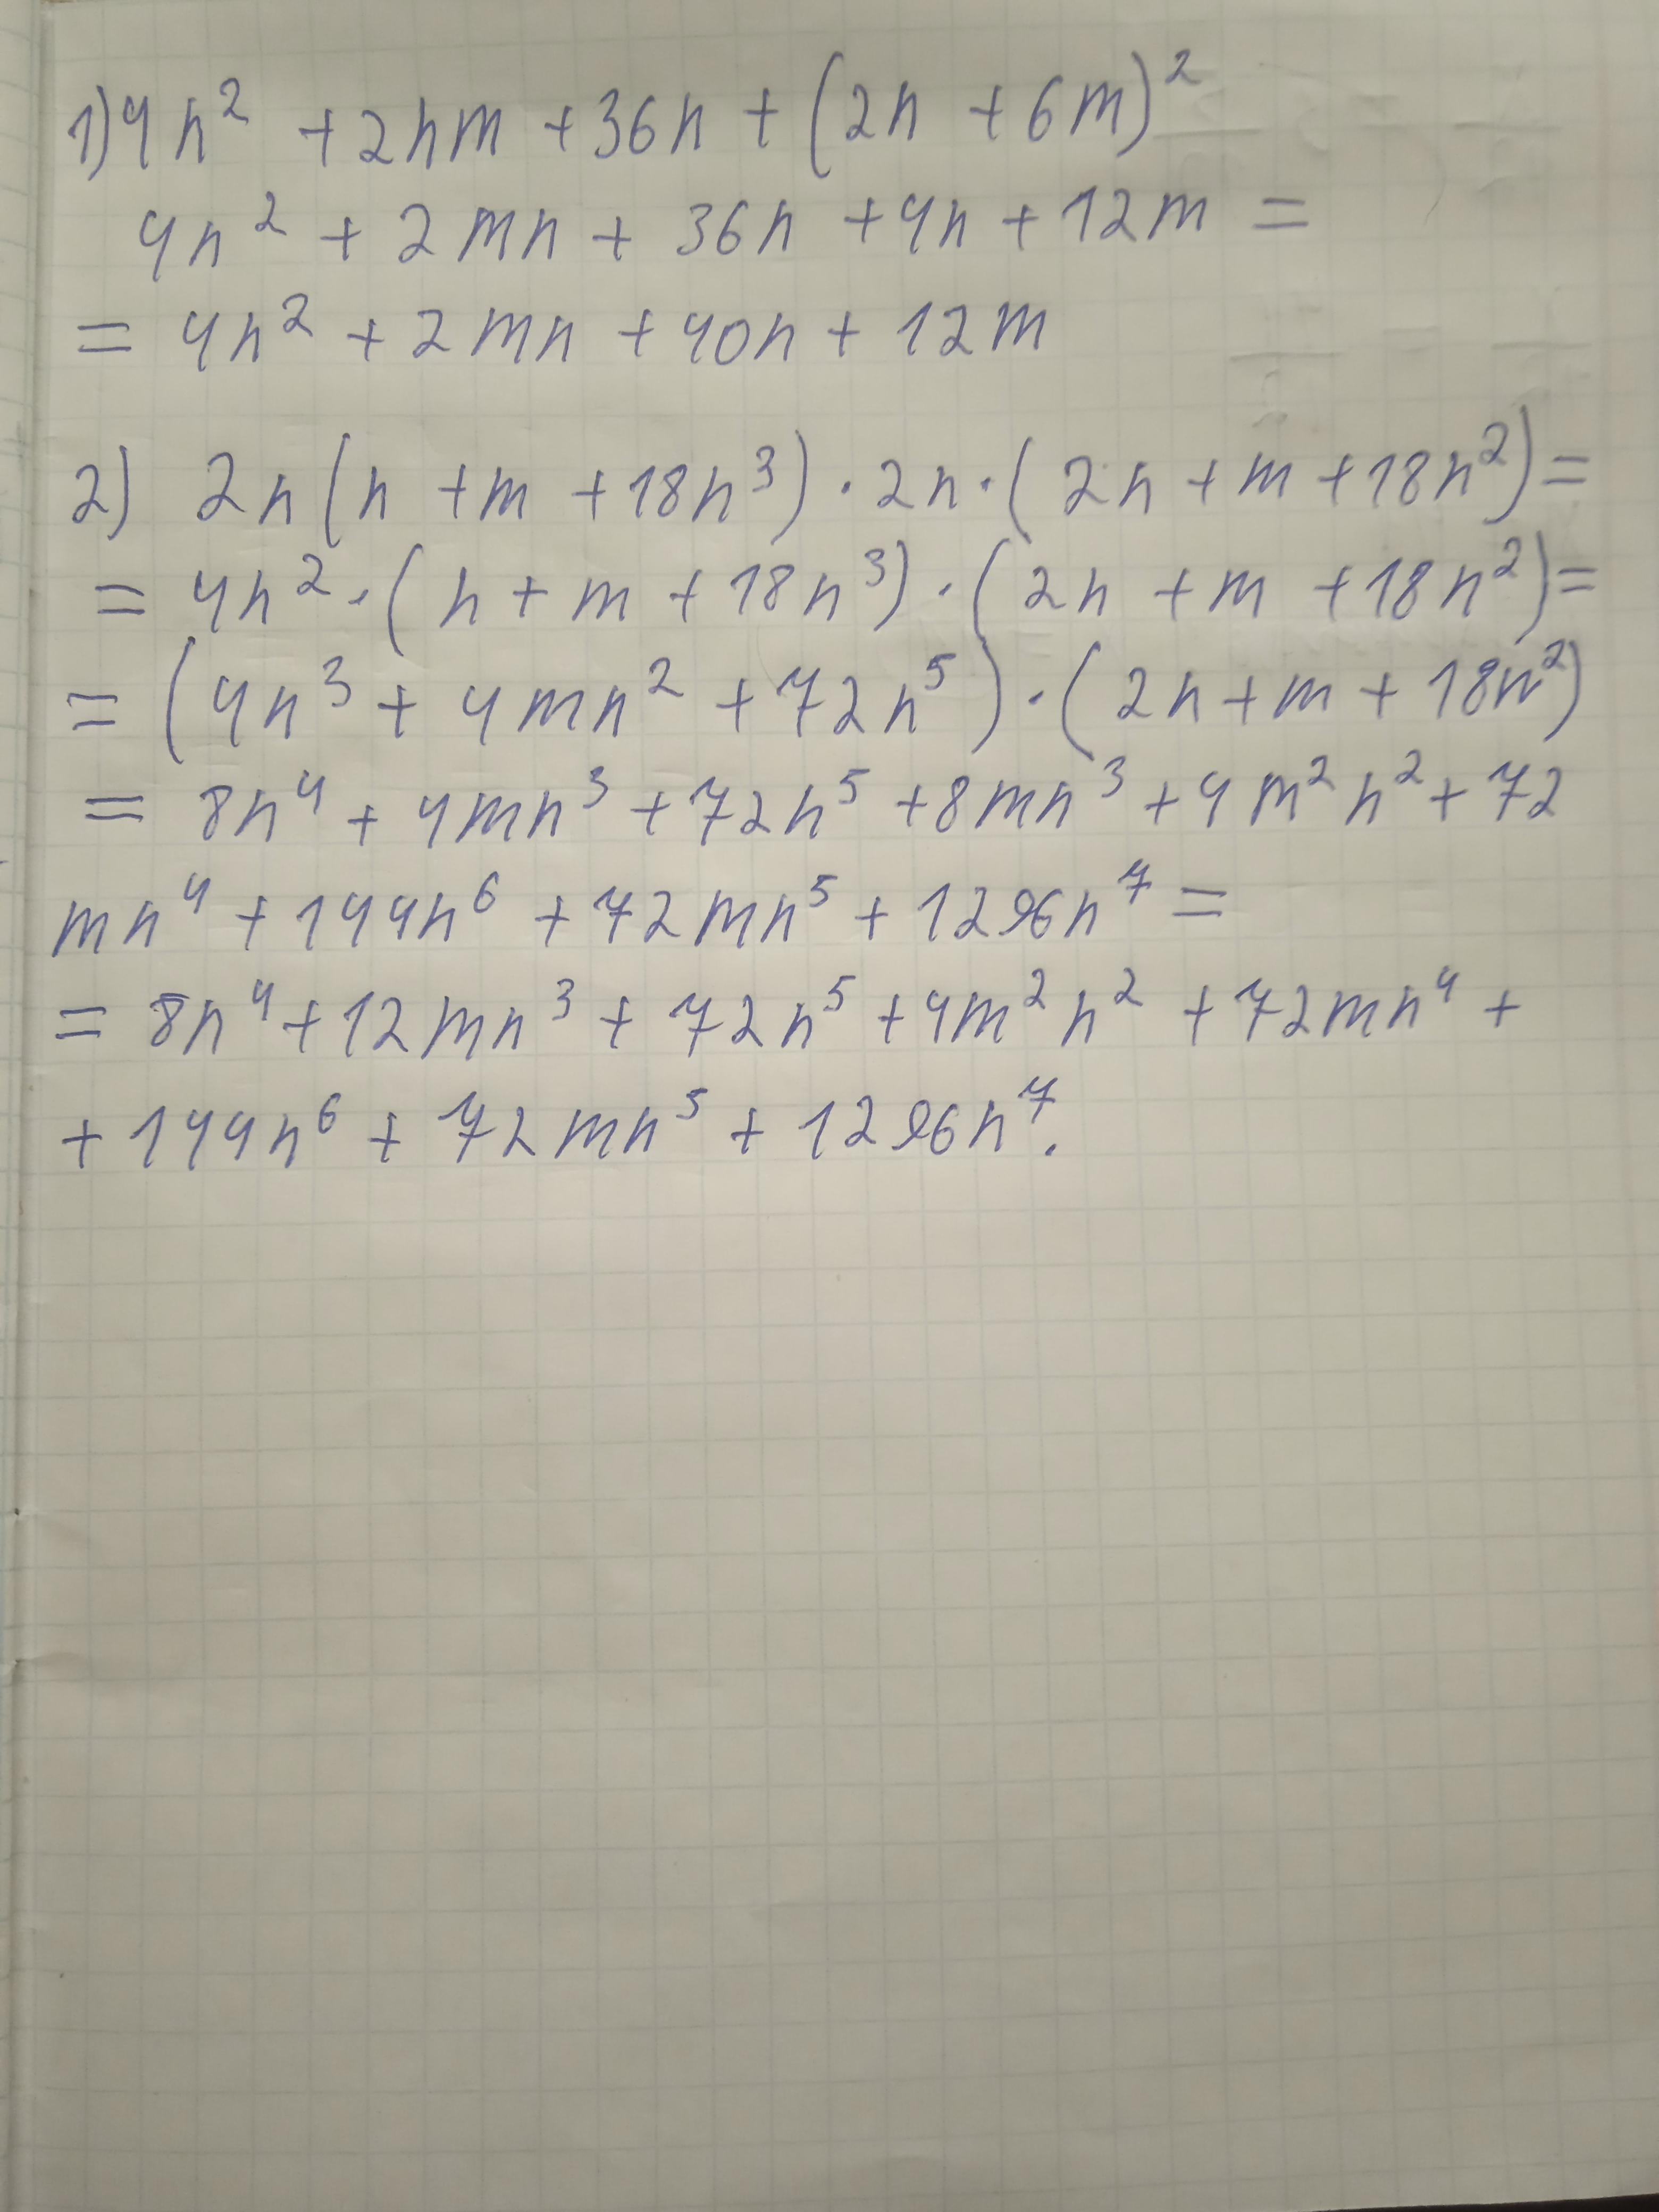 1) 4n² + 2nm + 36n + (2n + 6m)²
4n² + 2mn + 36n + 4n + 12m =
= 4n² + 2mn + 40n + 12m
2) 2n(n + m + 18n³) · 2n · (2n + m + 18n²) =
= 4n² · (n + m + 18n³) · (2n + m + 18n²) =
= (4n³ + 4mn² + 72n⁵) · (2n + m + 18n²)
= 8n⁴ + 4mn³ + 72n⁵ + 8mn³ + 4m²n² + 72
mn⁴ + 144n⁶ + 72mn⁵ + 1296n⁷ =
= 8n⁴ + 12mn³ + 72n⁵ + 4m²n² + 72mn⁴ +
+ 144n⁶ + 72mn⁵ + 1296n⁷.